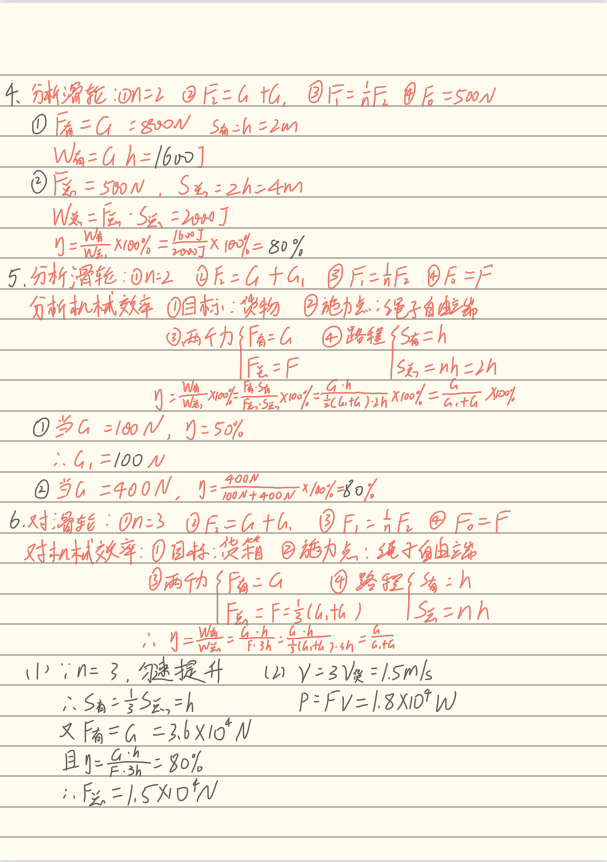 4. 分析滑轮:①n=2 ②F₂=G+G₁ ③F₁=1/n F₂ ④F₀=500N
①F有=G=800N S有=h=2m
W有=Gh=1600J
②F总=500N,S总=2h=4m
W总=F总·S总=2000J
η=W有/W总×100%=1600J/2000J×100%=80%
5.分析滑轮:①n=2 ②F₂=G+G₁ ③F₁=1/n F₂ ④F₀=F
分析机械效率 ①目标:货物 ②施力点:绳子自由端
③两个力{F有=G ④路程{S有=h
F总=F S总=nh=2h
η=W有/W总×100%=F有·S有/F总·S总×100%=G·h/½(G₁+G)·2h×100%=G/G₁+G×100%
①当G=100N,η=50%
∴G₁=100N
②当G=400N,η=400N/100N+400N×100%=80%
6.对滑轮:①n=3 ②F₂=G+G₁ ③F₁=1/n F₂ ④F₀=F
对机械效率:①目标:货箱 ②施力点:绳子自由端
③两个力{F有=G ④路程{S有=h
F总=F=⅓(G₁+G) S总=nh
∴η=W有/W总=G·h/F·3h=G·h/⅓(G₁+G)·3h=G/G₁+G
(1)∵n=3,匀速提升 (2)V=3V货=1.5m/s
∴S有=⅓S总=h P=FV=1.8×10⁴W
又F有=G=3.6×10⁴N
且η=G·h/F·3h=80%
∴F总=1.5×10⁴N